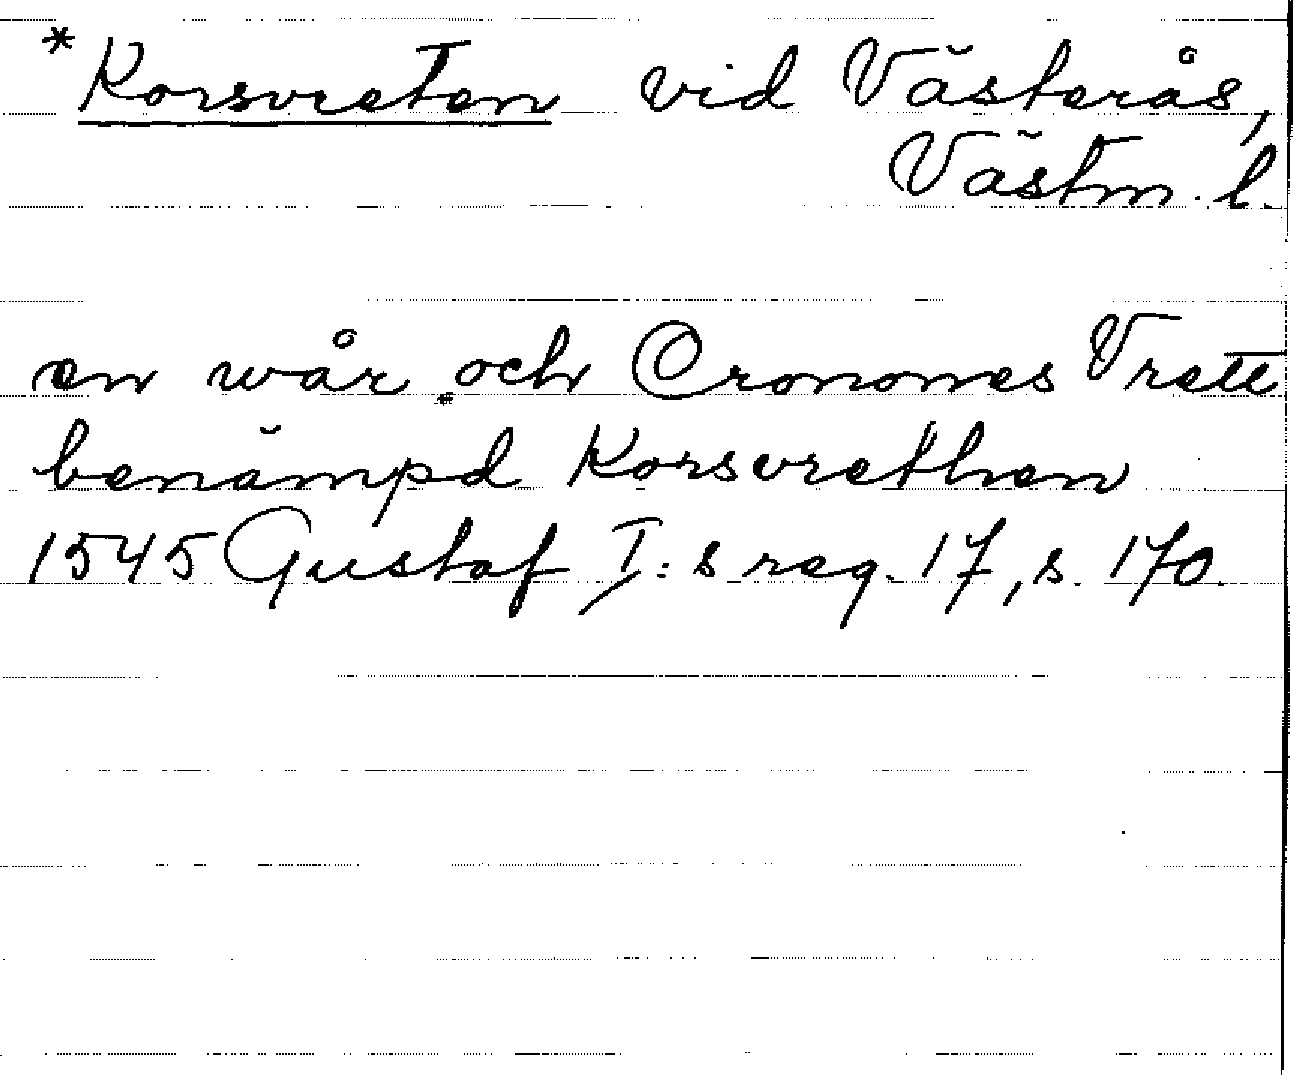 *Korsvreten vid Västerås,
Västm. l.
en wår och Cronones Vrett
benämpd Korsvrethen
1545 Gustaf I:s reg. 17, s. 170.